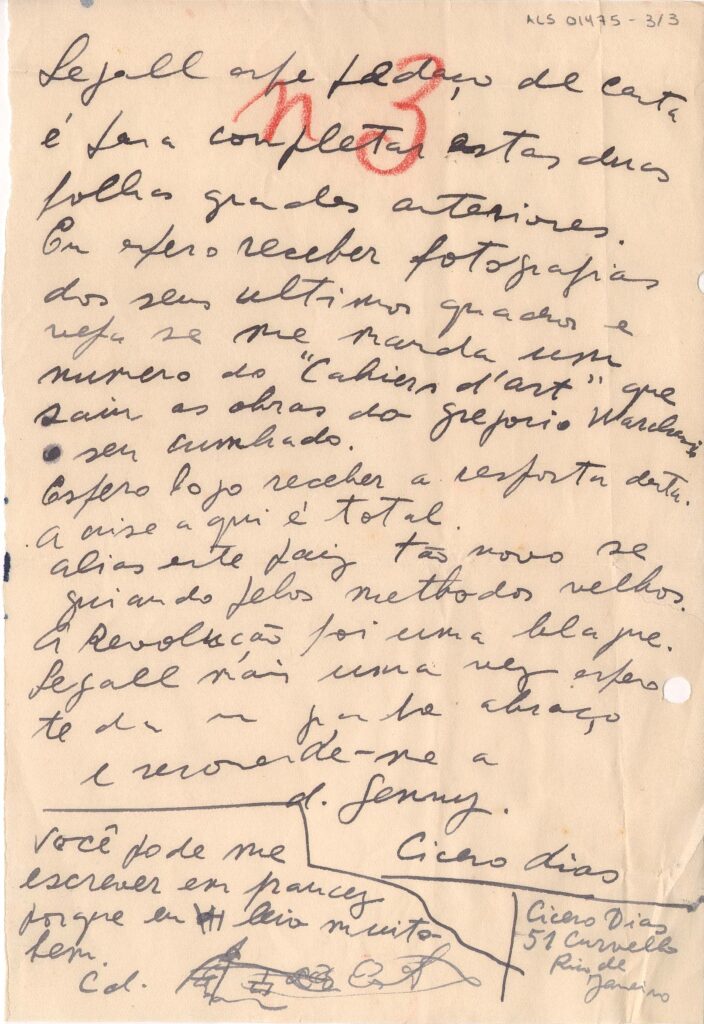 ALS 01475 - 3/3
nº 3
Segall este pedaço de carta
é para completar estas duas
folhas grandes anteriores.
Eu espero receber fotografias
dos seus ultimos quadros e
veja se me manda um
numero do "Cahiers d'art" que
saiu as obras do Gregorio Warchavik
o seu cunhado.
Espero logo receber a resposta desta.
A crise aqui é total.
alias este paiz tão novo se
guiando pelos methodos velhos.
A Revolução foi uma blague.
Segall mais uma vez espero
te da um abraço
e recomende-me a
d. Jenny.
Cicero Dias
Você pode me
escrever em francez
porque eu leio muito
bem.
Cd.
Cicero Dias
51 Curvello
Rio de
Janeiro